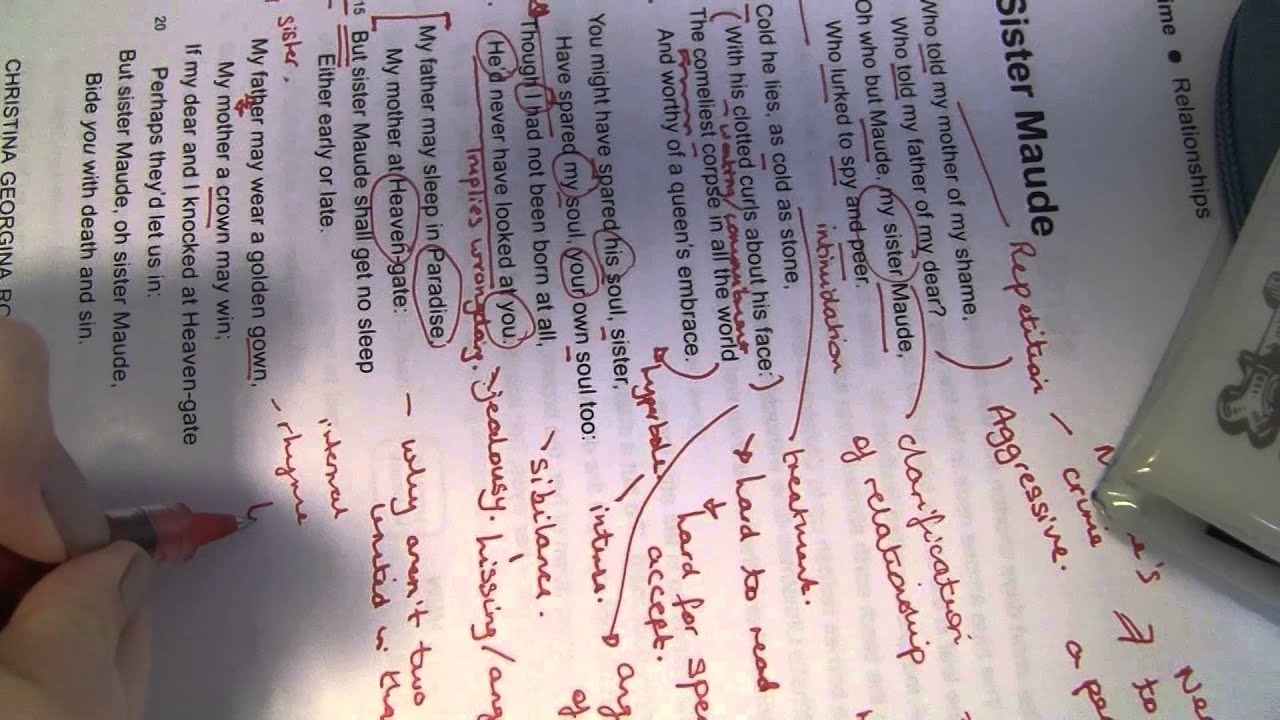 ime • Relationships
Sister Maude
Who told my mother of my shame,
Who told my father of my dear?
Oh who but Maude, my sister Maude,
Who lurked to spy and peer.
Cold he lies, as cold as stone,
With his clotted curls about his face:
The comeliest corpse in all the world
And worthy of a queen's embrace.
You might have spared his soul, sister,
Have spared my soul, your own soul too:
Though I had not been born at all,
He'd never have looked at you.
My father may sleep in Paradise,
My mother at Heaven-gate:
15 But sister Maude shall get no sleep
Either early or late.
My father may wear a golden gown,
My mother a crown may win;
If my dear and I knocked at Heaven-gate
20 Perhaps they'd let us in:
But sister Maude, oh sister Maude,
Bide you with death and sin.
CHRISTINA GEORGINA RO
Repetition - crime
Aggressive.
clarification
of relationship
intimidation
treatment.
hard to read
hard for spea
accept.
hyperbole
intense.
sibilance.
Implies wrongdoing.
jealousy.
hissing/ang
- why aren't two
united in
internal
- rhyme
sister,